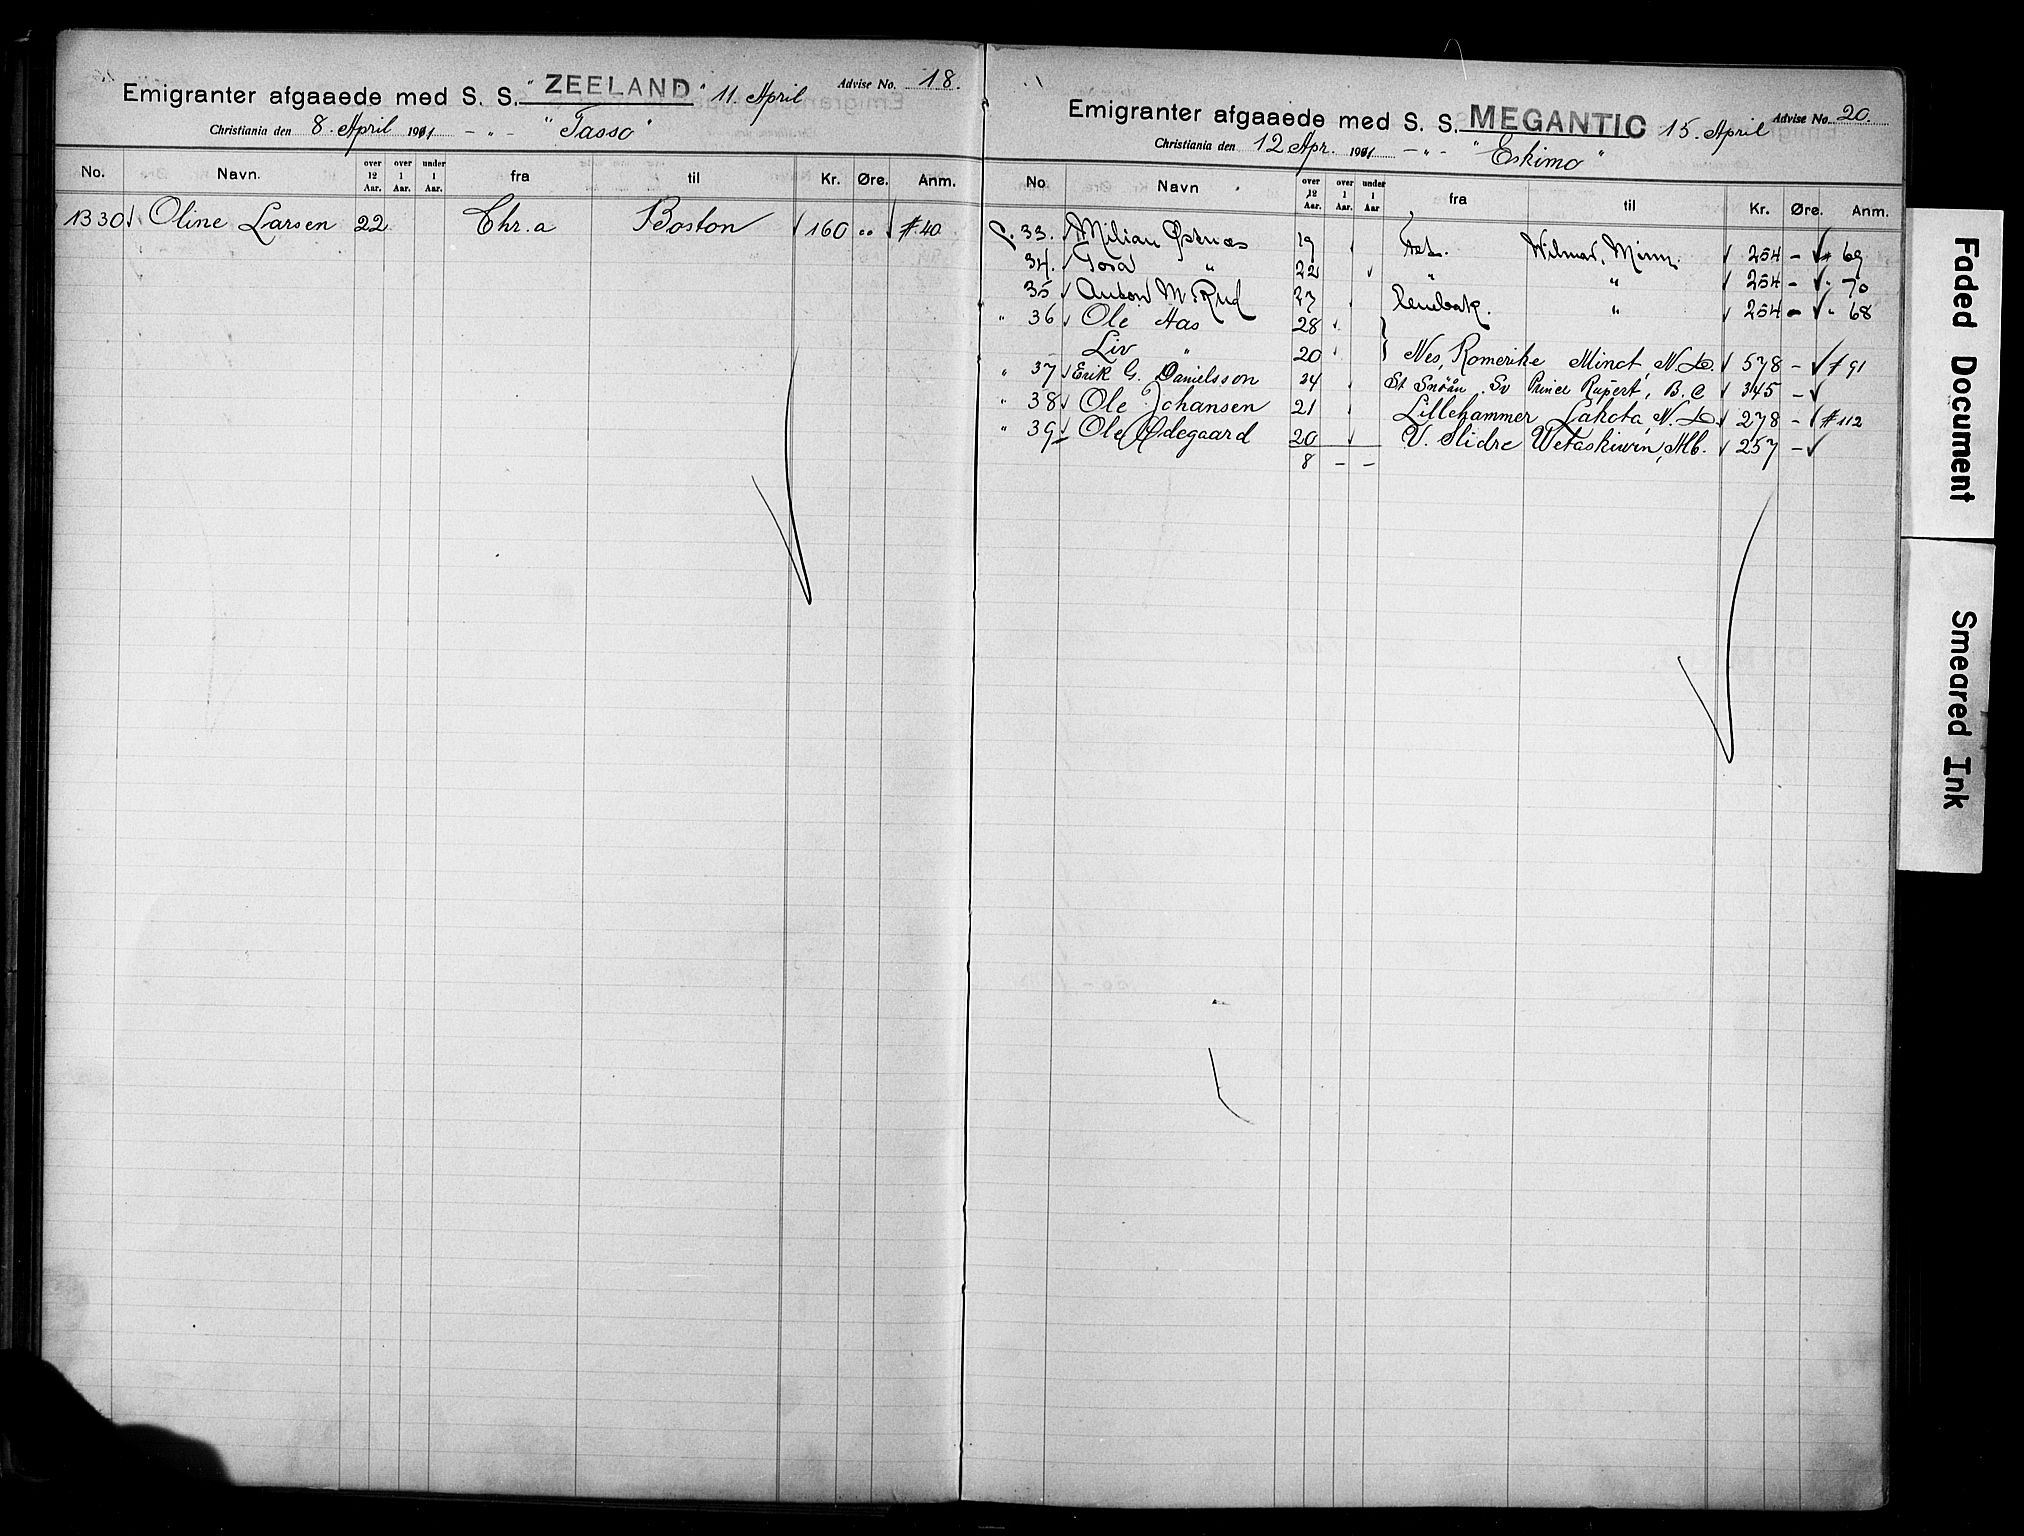 Emigranter afgaaede med S. S. "ZEELAND" 11 April Advise No. 18.
Christiania den 8. April 1911 - " - "Tasso"
No. Navn. over 12 Aar. over 1 Aar. under 1 Aar. fra til Kr. Øre. Anm.
1330 Oline Larsen 22 Chr.a Boston 160 " #40
Emigranter afgaaede med S. S. MEGANTIC 15. April Advise No. 20.
Christiania den 12 Apr. 1911 - " - "Eskimo"
No. Navn over 12 Aar. over 1 Aar. under 1 Aar fra til Kr. Øre. Anm.
33. Milian 19 Wilmar, Minn. 254 - " 69
34. Tora " 22 " " 254 - " 70
35 Anton M. Rud 27 " 254 - " 68
" 36 Ole Aas 28
Liv " 20 Nes, Romerike Minot, N.D. 578 - # 91
" 37 Erik G. Danielsson 24 St Snöån. Sv Prince Rupert, B.C 345 -
" 38 Ole Johansen 21 Lillehammer Lakota, N.D. 278 - # 112
" 39 Ole Ødegaard 20 V. Slidre Wetaskiwin, Alb. 257 -
8 - -
Faded Document
Smeared Ink